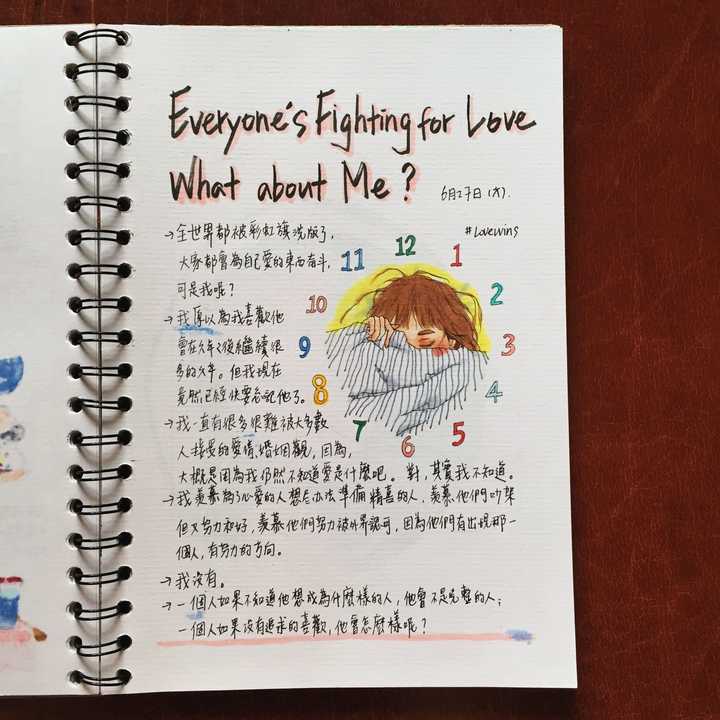 Everyone's Fighting for Love
What about Me?
6月27日(六).
#Lovewins
→全世界都被彩虹旗洗版了,
大家都會為自己愛的東西奋斗,
可是我呢?
→我原以為我喜歡他
會在久久之後繼續很
多的久年。但我現在
竟然已經快要忘記他了。
→我一直有很多很難被大多數
人接受的愛情、婚姻觀,因為,
大概是因為我仍然不知道愛是什麼吧。對,其實我不知道。
→我羨慕為了心愛的人想尽办法準備精喜的人,羨慕他們吵架
但又努力和好,羨慕他們努力被外界認可,因為他們有出現那一
個人,有努力的方向。
→我沒有。
→一個人如果不知道他想成為什麼樣的人,他會不是完整的人;
一個人如果沒有追求的喜歡,他會怎麼樣呢?
12
1
2
3
4
5
6
7
8
9
10
11